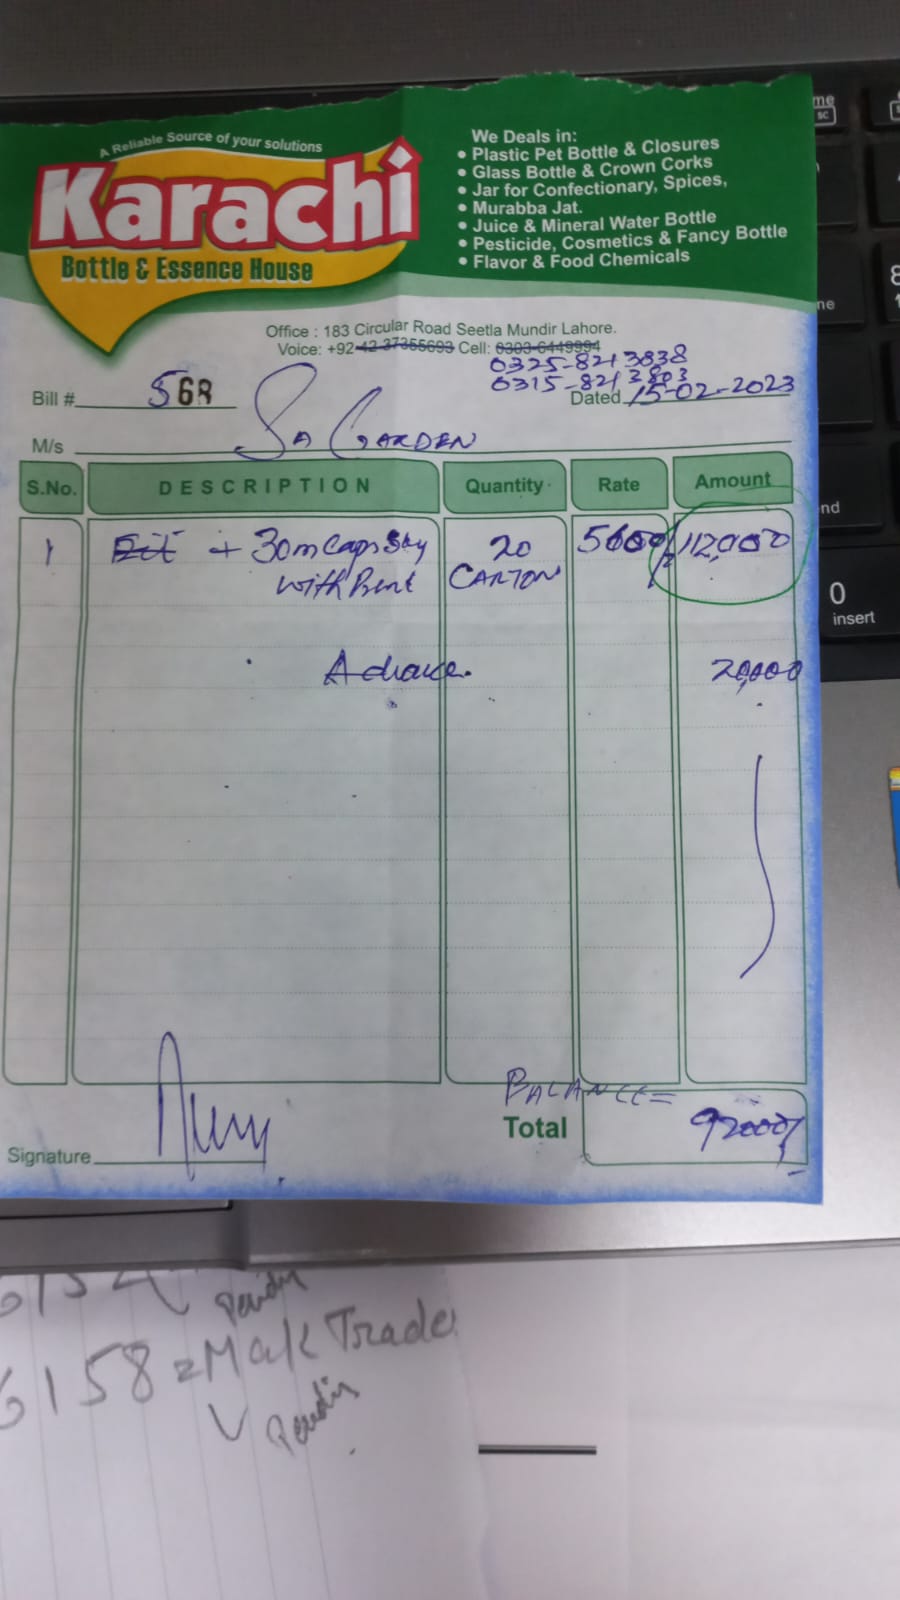 A Reliable Source of your solutions
Karachi
Bottle & Essence House
We Deals in:
• Plastic Pet Bottle & Closures
• Glass Bottle & Crown Corks
• Jar for Confectionary, Spices,
• Murabba Jat.
• Juice & Mineral Water Bottle
• Pesticide, Cosmetics & Fancy Bottle
• Flavor & Food Chemicals
Office : 183 Circular Road Seetla Mundir Lahore.
Voice: +92-42-37355693 Cell: 0303-6449994
0325-8213838
0315-8213803
Bill # 568
Dated 15-02-2023
M/s SA GARDEN
S.No. DESCRIPTION Quantity Rate Amount
1 + 30m Caps 20 5600/ 112,000
with CARTON
Advance. 20,000
BALANCE =
Total 92000/
Signature
6158 = Mak Trade
me
sc
8
ne
nd
0
insert